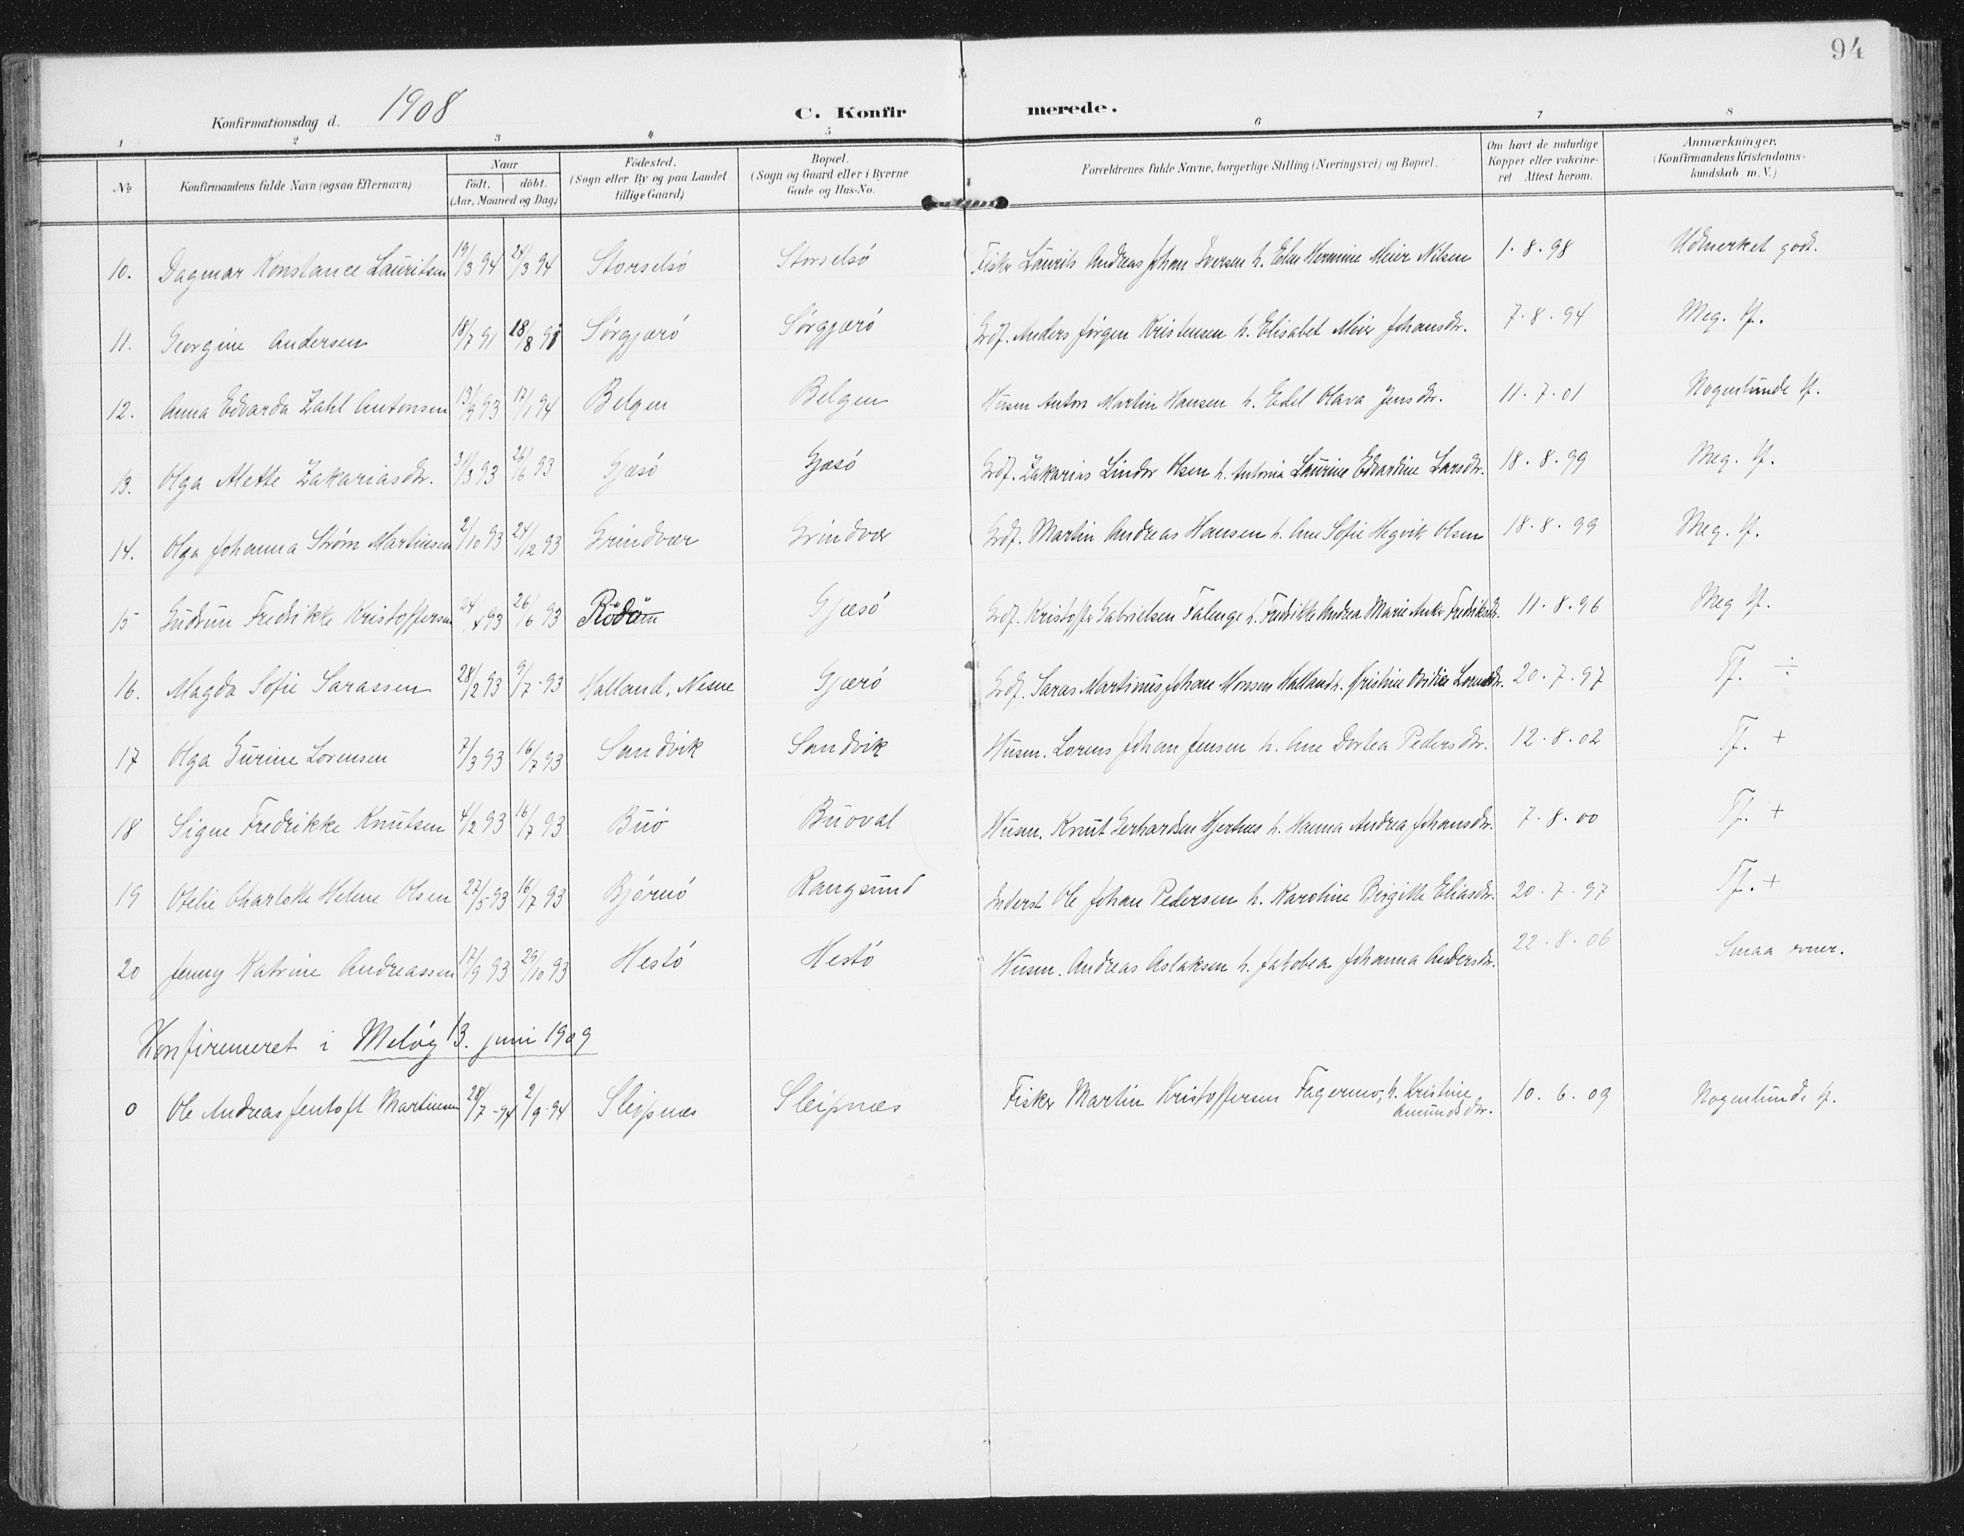 94
Konfirmationsdag d. 1908 C. Konfirmerede.
1 2 3 4 5 6 7 8
No Konfirmandens fulde Navn (ogsaa Efternavn) Naar født. døbt. (Aar, Maaned og Dag) Fødested. (Sogn eller By og paa Landet tillige Gaard) Bopæl. (Sogn og Gaard eller i Byerne Gade og Hus-No. Forældrenes fulde Navne, borgerlige Stilling (Næringsvei) og Bopæl. Om havt de naturlige Kopper eller vakcineret. Attest herom. Anmærkninger. (Konfirmandens Kristendomskundskab m. V.)
10. Dagmar Konstance Lauritsen 19/3 94 24/3 94 Storselsö Storselsö Fisker Laurits Andreas Johan Iversen h. Elen Hermine Meier Nilsen 1.8.98 Udmerket godt.
11. Georgine Andersen 18/7 91 18/8 91 Sørgjærö Sørgjærö Grdf. Anders Jørgen Kristensen h. Elisabet Meier Johansdtr. 7.8.94 Meg. tf.
12. Anna Edvarda Zahl Antonsen 13/9 93 17/1 94 Belgen Belgen Husm Anton Martin Hansen h. Edel Olava Jensdtr. 11.7.01 Nogenlunde tf.
13. Olga Mette Zakariasdtr. 31/3 93 26/6 93 Gjæsö Gjæsö Grdf. Zakarias Lindor Olsen h. Antonia Laurine Edvardine Larsdtr. 18.8.99 Meg. tf.
14. Olga Johanna Strøm Martinsen 2/10 93 24/12 93 Grindvær Grindvær Grdf. Martin Andreas Hansen h. Ane Sofie Hegvik Olsen 18.8.99 Meg. tf.
15 Gudrun Fredrikke Kristoffersen 93 26/6 93 Rödöen Gjæsö Grdf. Kristoffer Gabrielsen Falenge h. Fredrikke Andrea Marie Anker Fredriksdtr. 11.8.96 Meg tf.
16. Magda Sofie Sarassen 28/2 93 9/7-93 Halland, Nesne Gjærö Grdf. Saras Martinus Johan Monsen Halland h. Kristine Ovidie Lorntsdtr. 20.7.97 Tf. ÷
17 Olga Gurine Lorensen 7/3 93 16/7 93 Sandvik Sandvik Husm. Lorens Johan Jensen h. Ane Dortea Pedersdtr. 12.8.02 Tf. +
18 Signe Fredrikke Knutsen 4/2 93 16/7 93 Buö Buoval Husm. Knut Gerhardsen Hjertnes h. Hanna Andrea Johansdtr. 7.8.00 Tf. +
19 Otelie Charlotte Helene Olsen 27/5 93 16/7 93 Bjørnö Rangsund Inderst Ole Johan Pedersen h. Karoline Birgitte Eliasdtr. 20.7.97 Tf. +
20 Jenny Katrine Andreassen 17/9 93 29/10 93 Hestö Hestö Husm. Andreas Aslaksen h. Jakobea Johanna Andersdtr. 22.8.06 Smaa evner.
Konfirmeret i Meløy 13. juni 1909
0 Ole Andreas Jentoft Martinsen 28/7-94 2/9-94 Sleipnæs Sleipnæs Fisker Martin Kristoffersen Fagermo, h. Kristine Amundsdtr. 10.6.09 Nogenlunde tf.